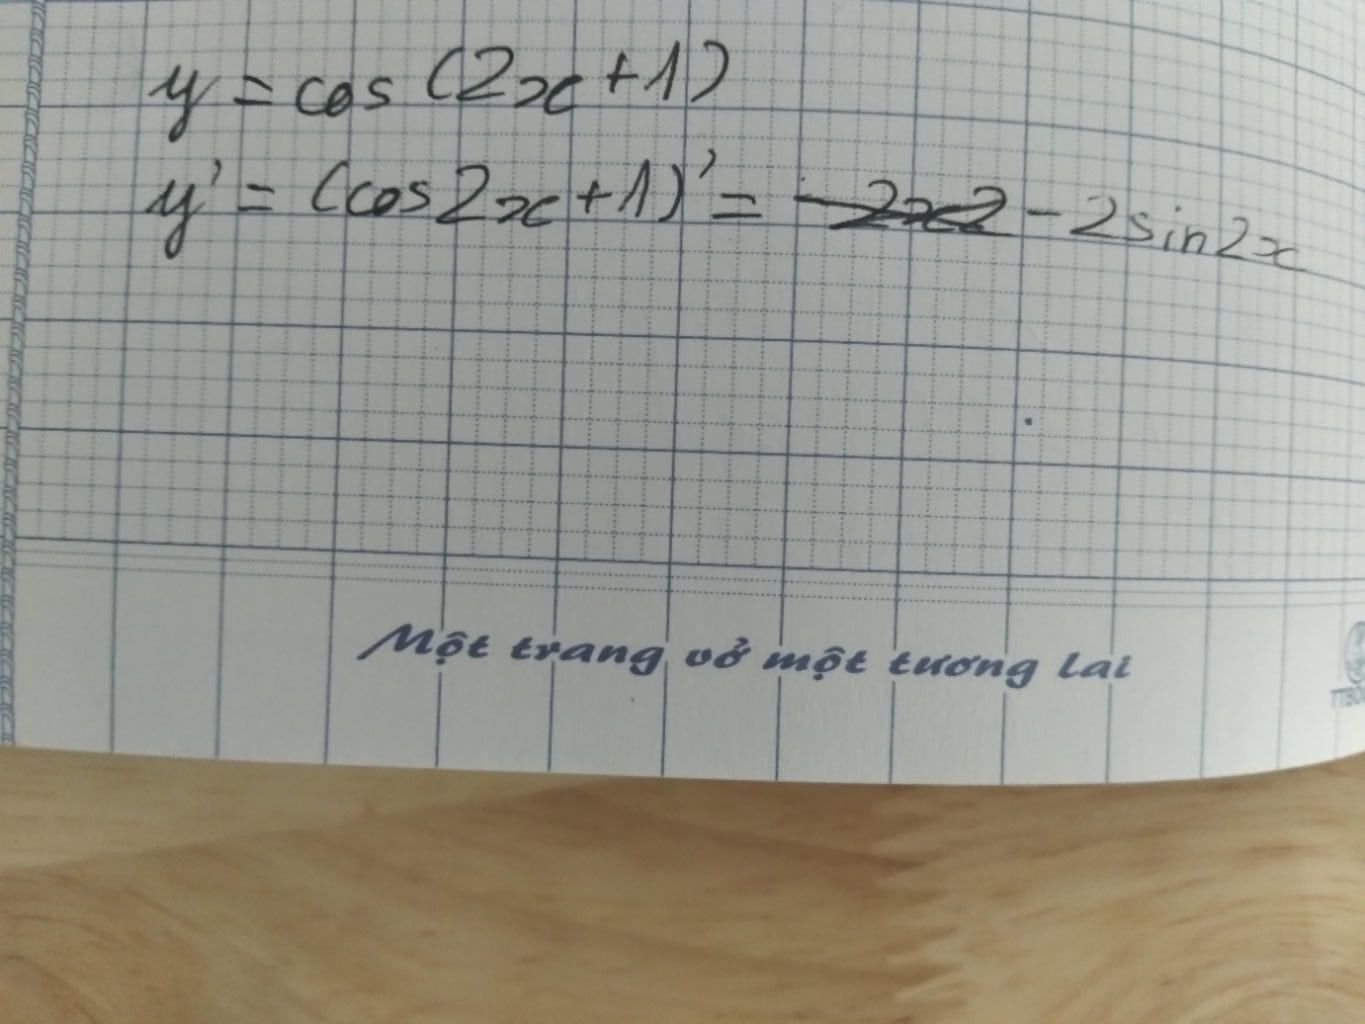 y = cos (2x + 1)
y' = (cos2x + 1)' = - 2sin2x
Một trang vở một tương lai